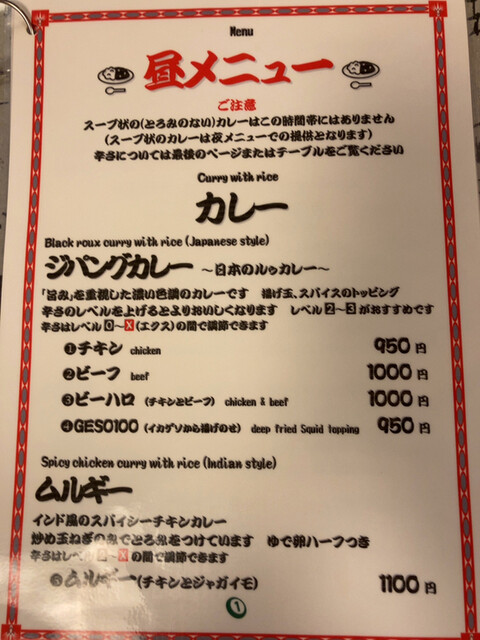 Menu
昼メニュー
ご注意
スープ状の(とろみのない)カレーはこの時間帯にはありません
(スープ状のカレーは夜メニューでの提供となります)
辛さについては最後のページまたはテーブルをご覧ください
Curry with rice
カレー
Black roux curry with rice (Japanese style)
ジパングカレー ～日本のルゥカレー～
「旨み」を重視した濃い色調のカレーです 揚げ玉、スパイスのトッピング
辛さのレベルを上げるとよりおいしくなります レベル2～3がおすすめです
辛さはレベル0～X(エクス)の間で調節できます
❶チキン chicken 950円
❷ビーフ beef 1000円
❸ビーハロ (チキンとビーフ) chicken & beef 1000円
❹GESO100 (イカゲソから揚げのせ) deep fried Squid topping 950円
Spicy chicken curry with rice (Indian style)
ムルギー
インド風のスパイシーチキンカレー
炒め玉ねぎの とろみをつけています ゆで卵ハーフつき
辛さはレベル ～Xの間で調節できます
ムルギー(チキンとジャガイモ) 1100円
1